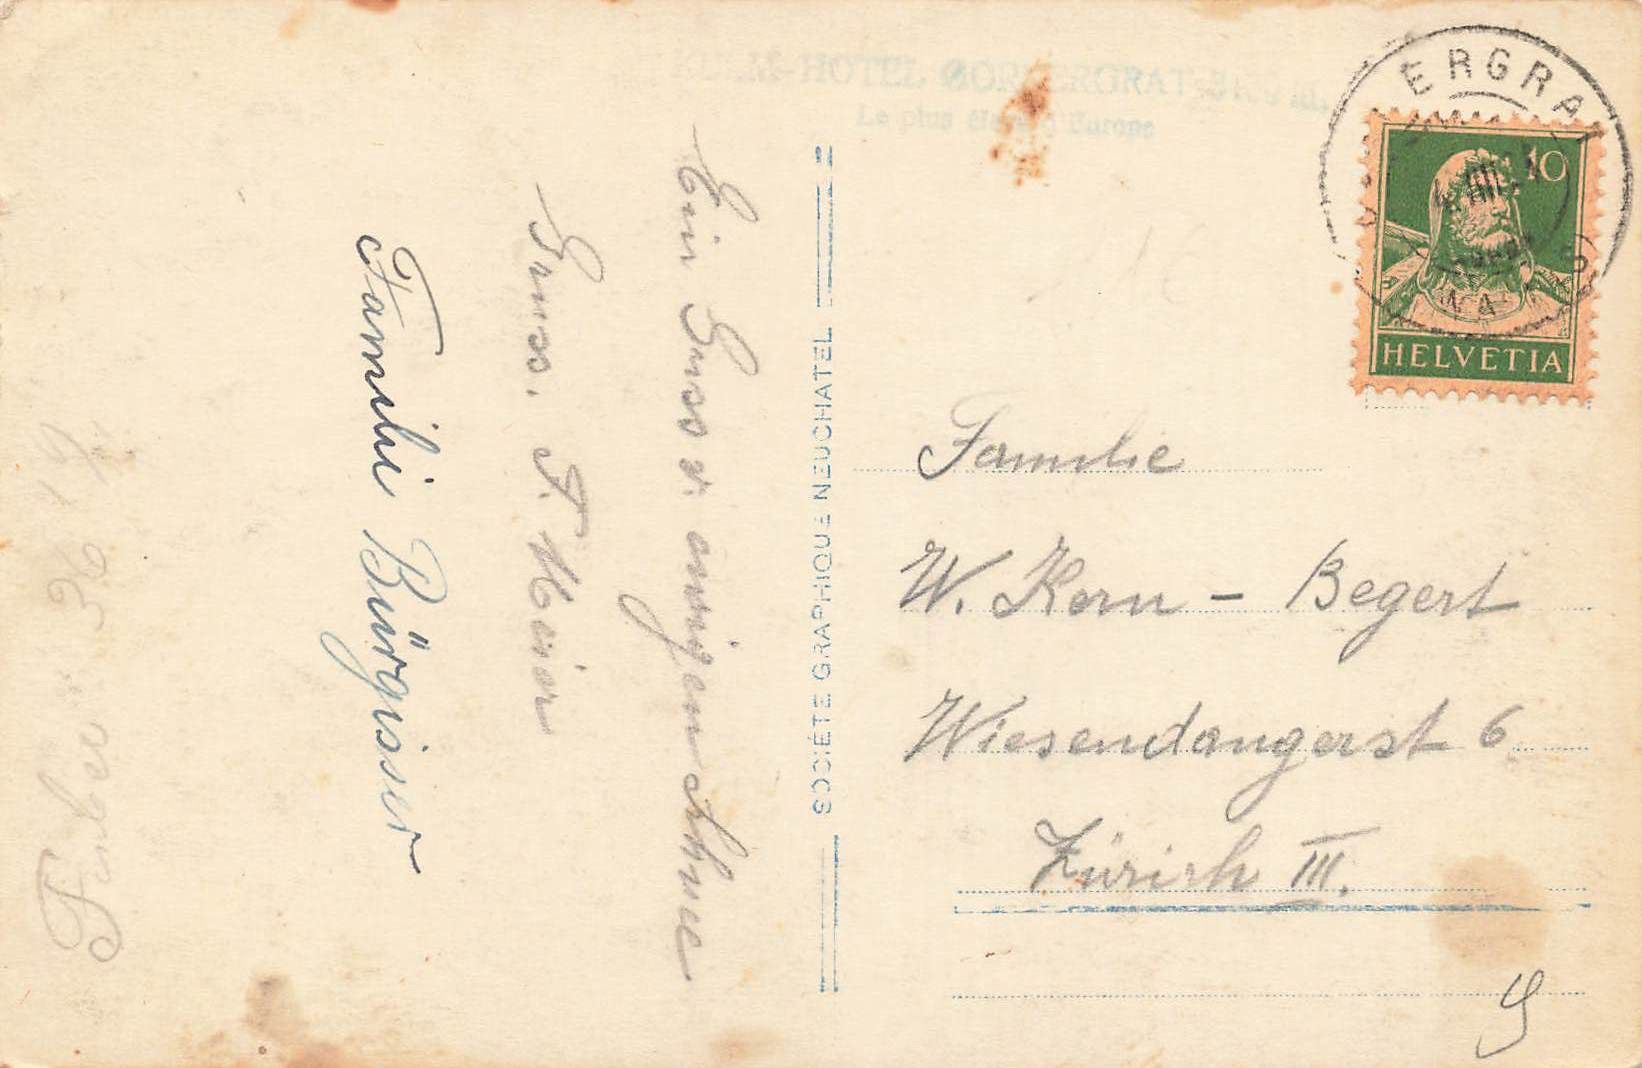 KULM-HOTEL GORNERGRAT
Le plus élevé d'Europe
ERGRAT
10
HELVETIA
Ein Gruss v. ewigen Schnee
Gruss. F. Meier
Familie Bürgisser
SOCIÉTÉ GRAPHIQUE NEUCHATEL
Familie
W. Korn - Begert
Wiesendangerst 6
Zürich III.
36